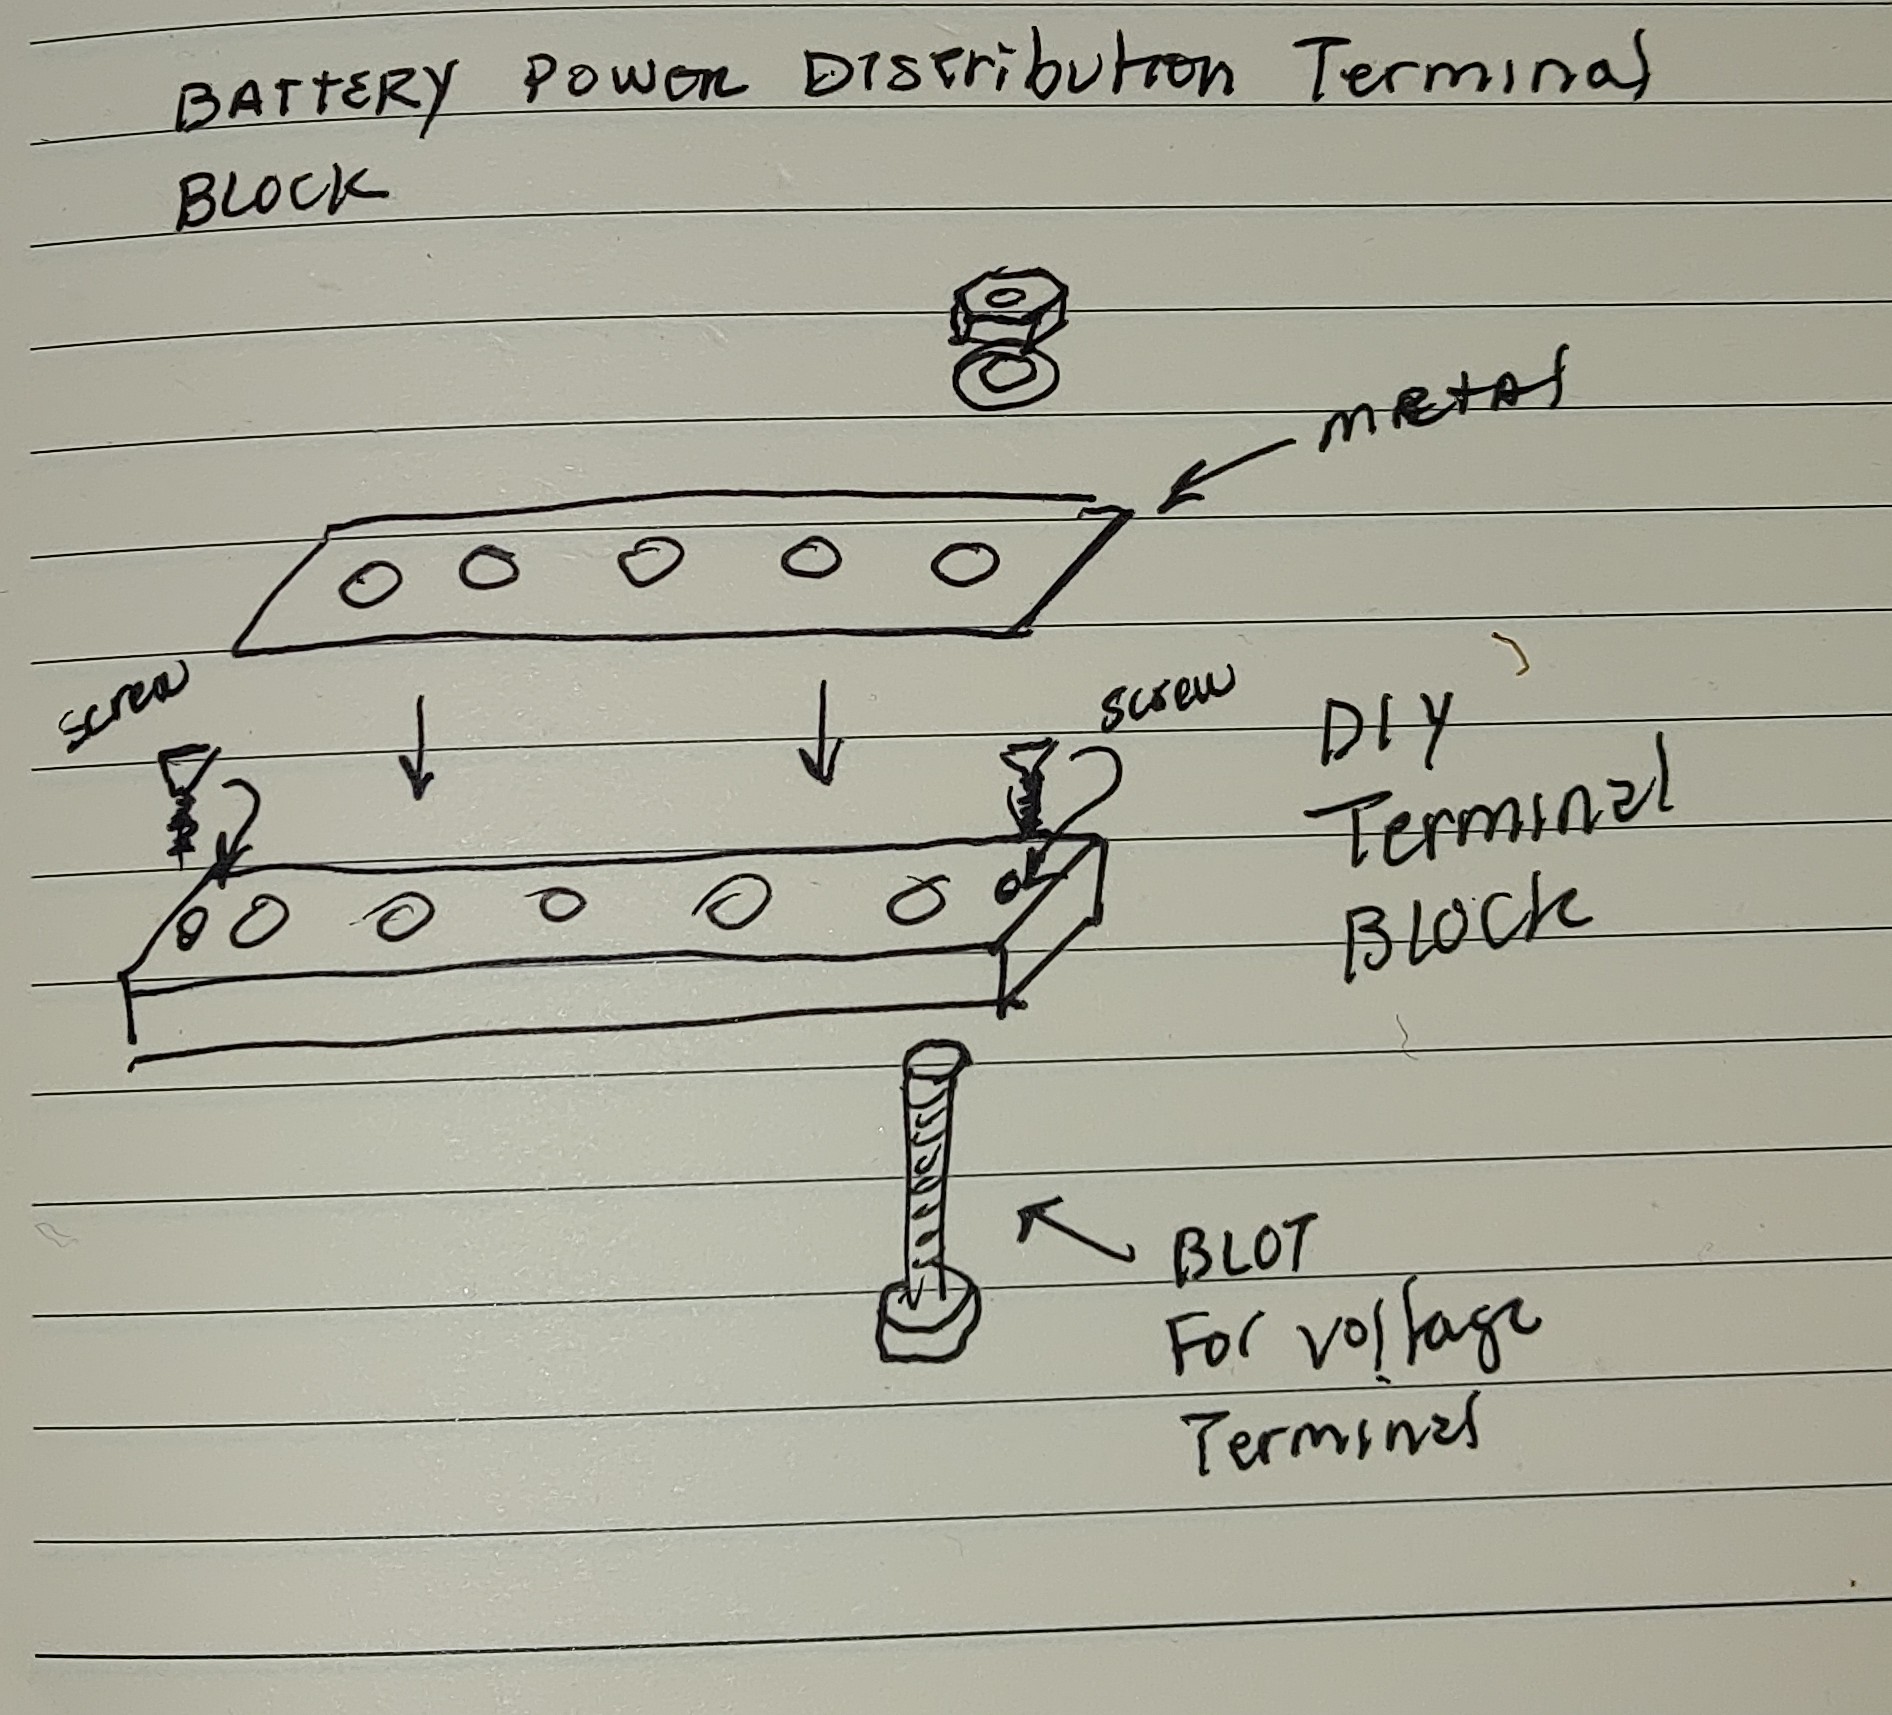 BATTERY POWER DIstribution Terminal
BLOCK
METAl
screw
screw
DIY
Terminal
BLOCK
BLOT
For voltage
Terminal